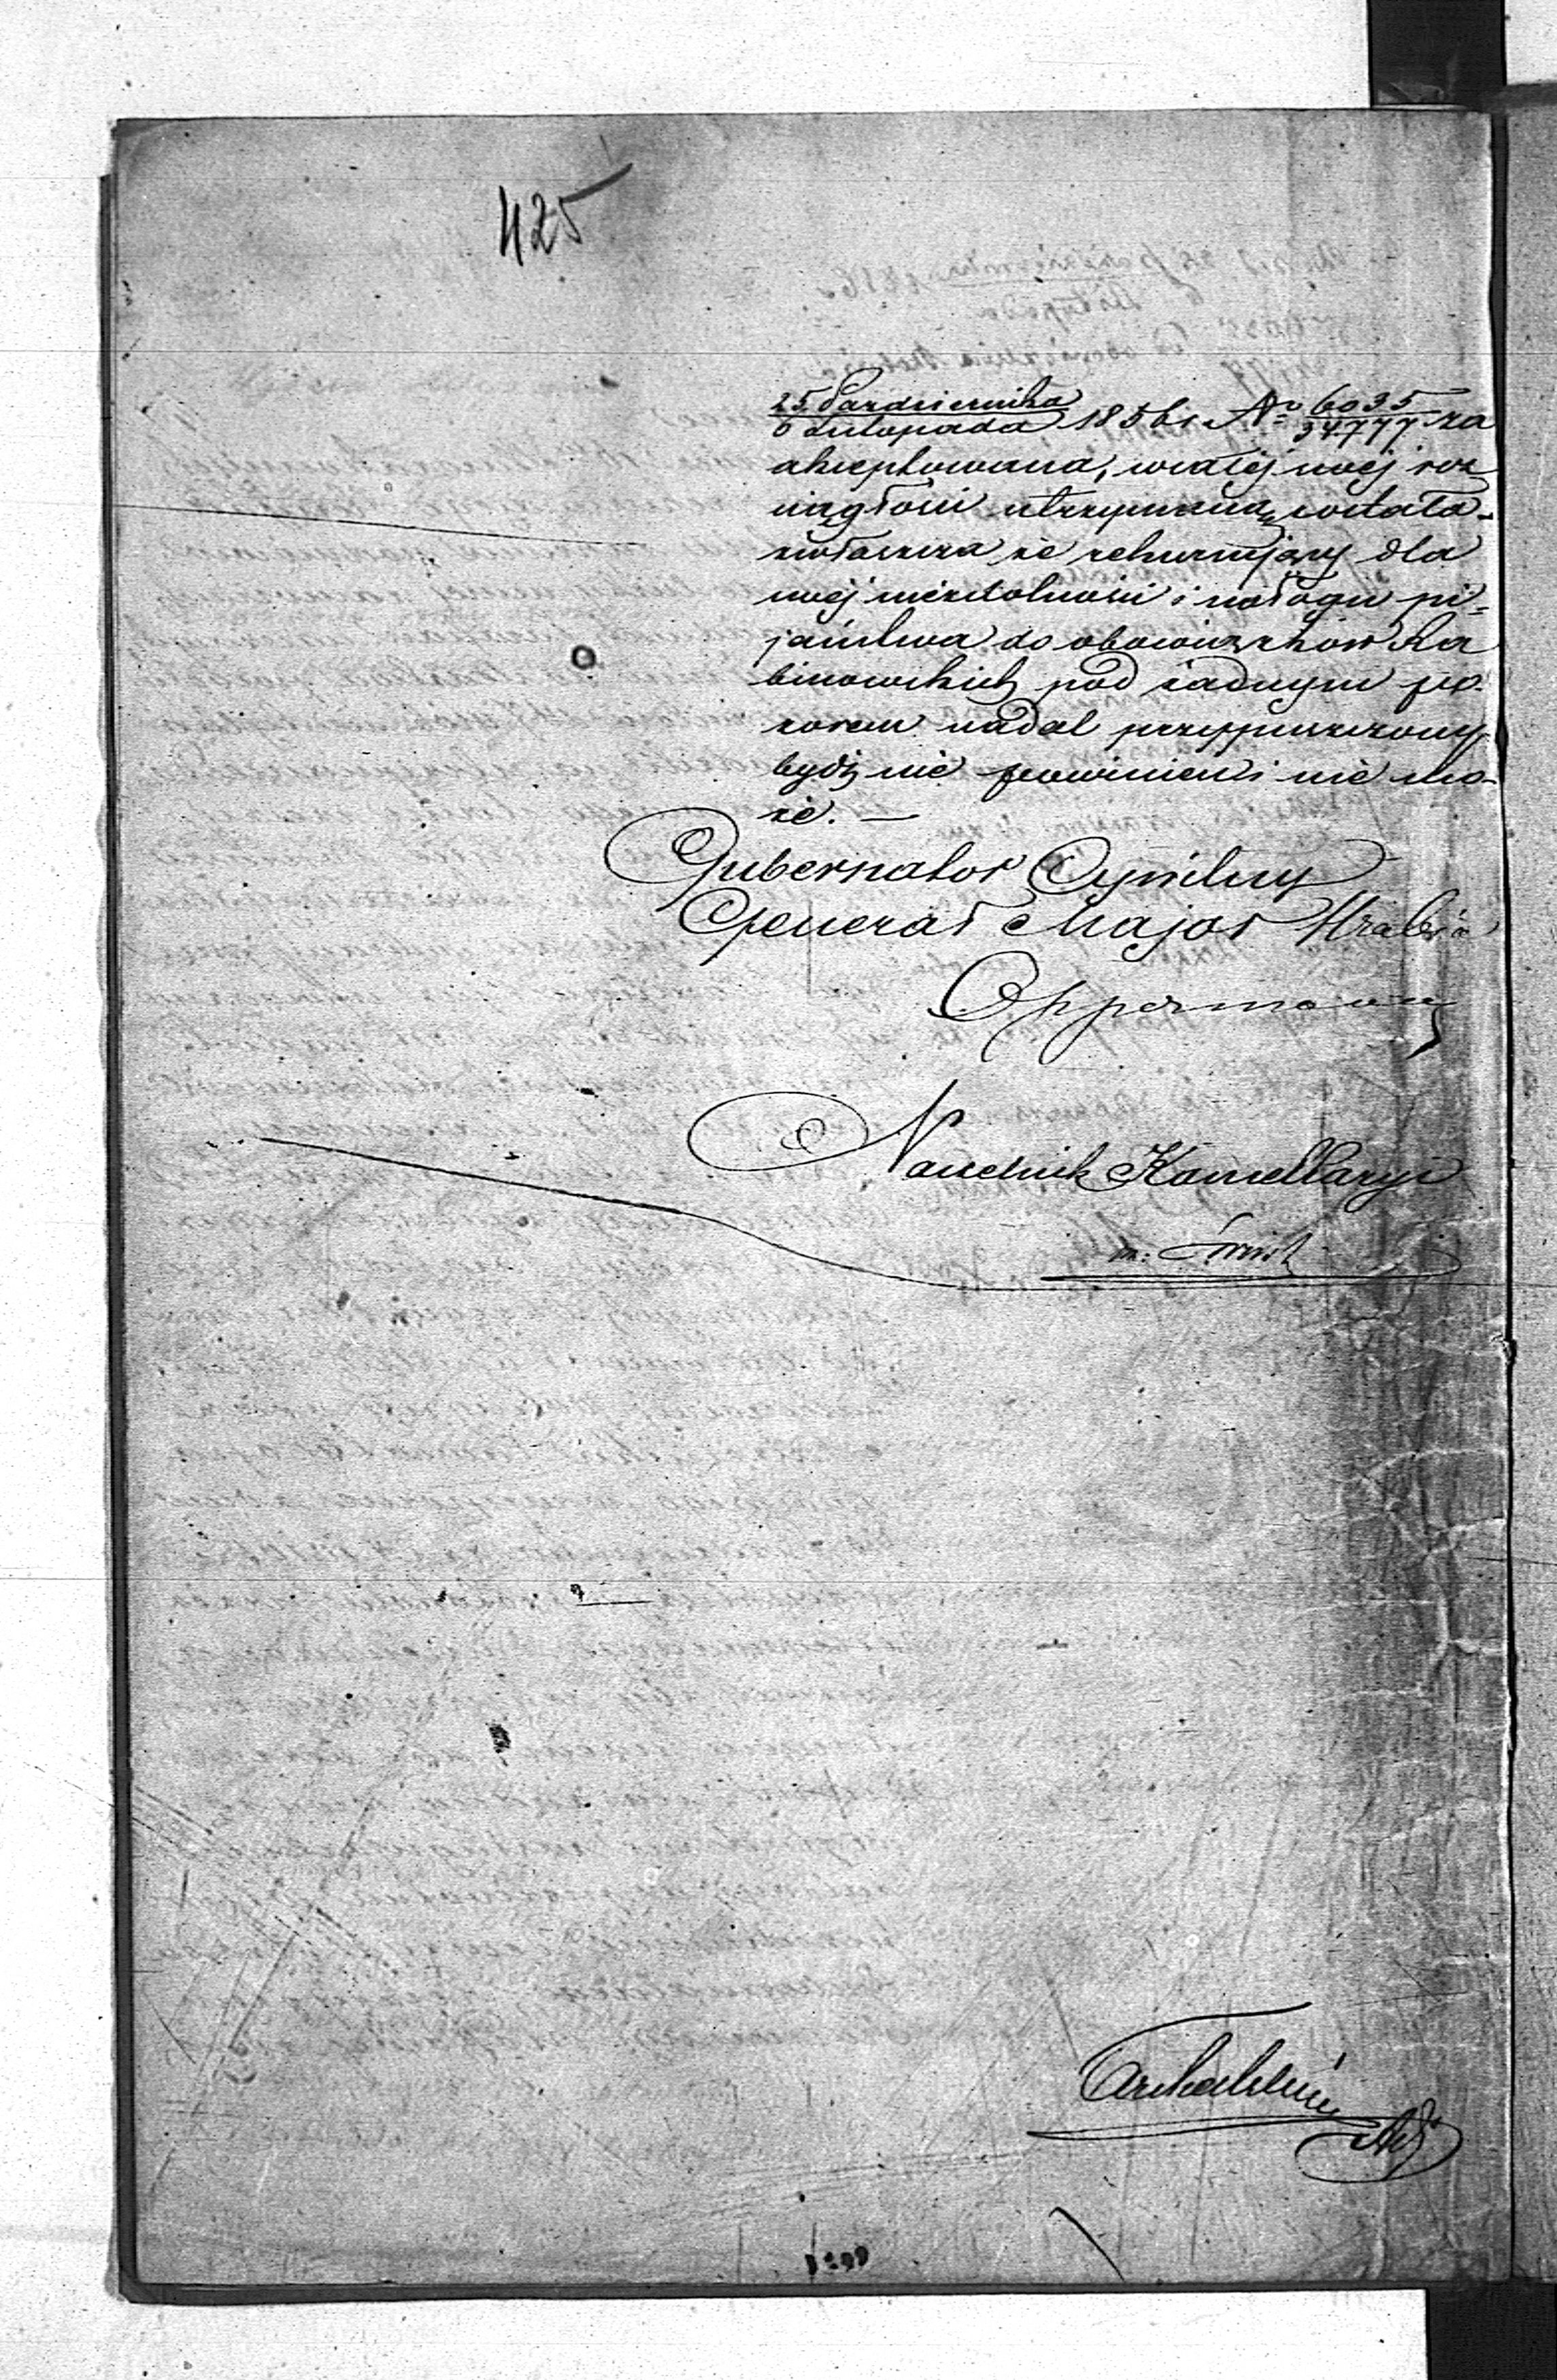 425
25 Października / 6 Listopada 1856 r. No 6035/34777 za
akceptowana, w całej swej roz
ciągłości utrzymaną została
zwłaszcza że rekurujący dla
swej niezdolności i nałogu pi=
jaństwa do obowiązków Ra
binowskich pod żadnym po-
zorem nadal przypuszczony
bydź nie powinien i nie mo-
że. —
Gubernator Cywilny
Generał Major Hrabia
Opperman
Naczelnik Kancellaryi